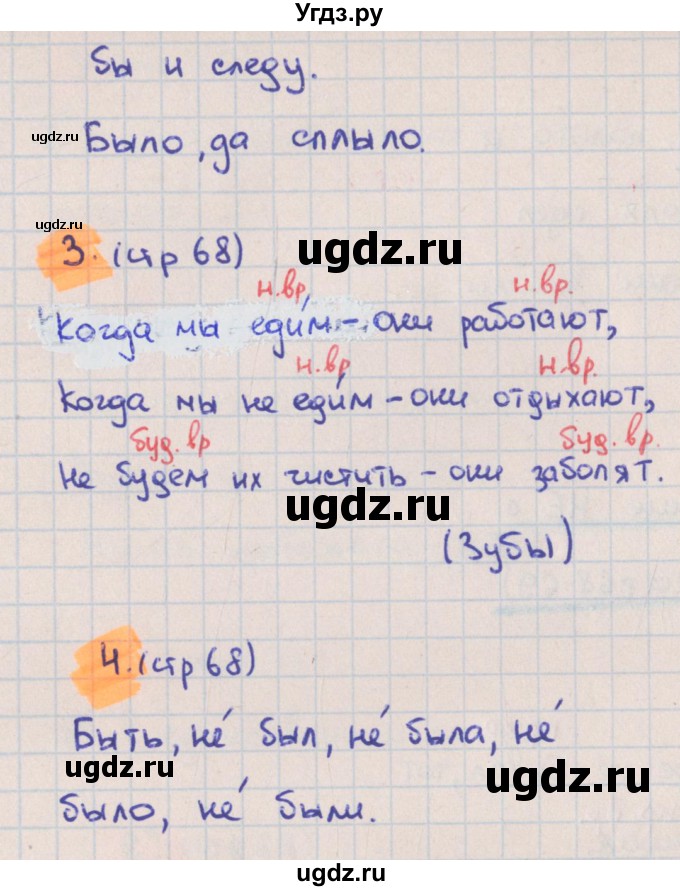 Угдз.ру
бы и следу.
ugdz.ru
Было, да сплыло.
ugdz.ru
3. (стр 68)
ugdz.ru
н.вр. н.вр.
Когда мы еди́м – они работают,
н.вр. н.вр.
Когда мы не еди́м – они отдыхают,
буд. вр буд. вр.
Не будем их чистить – они заболят.
ugdz.ru
(Зубы)
4. (стр 68)
Быть, не́ был, не́ была, не́
ugdz.ru
ugdz.ru
было, не́ были.
ugdz.ru